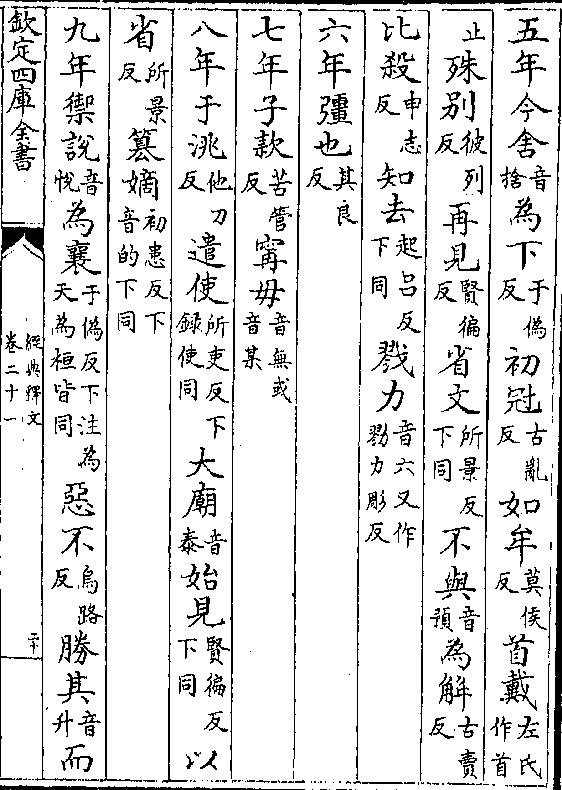 五年今舍音捨為下于偽反初冠古亂反如牟莫侯反首戴左氏作首
止殊別彼列反再見賢徧反省文所景反下同不與音預為解古賣反
比殺申志反知去起呂反下同戮力音六又作勠力彫反
六年彊也其良反
七年子款苦管反寗毋音無或音某
八年于洮他刀反遣使所吏反下録使同大廟音泰始見賢徧反下同以
省所景反簒嫡初患反下音的下同
九年禦說音悅為襄于偽反下注為天為桓皆同惡不烏路反勝其音升而
欽定四庫全書
經典釋文
卷二十一
二十